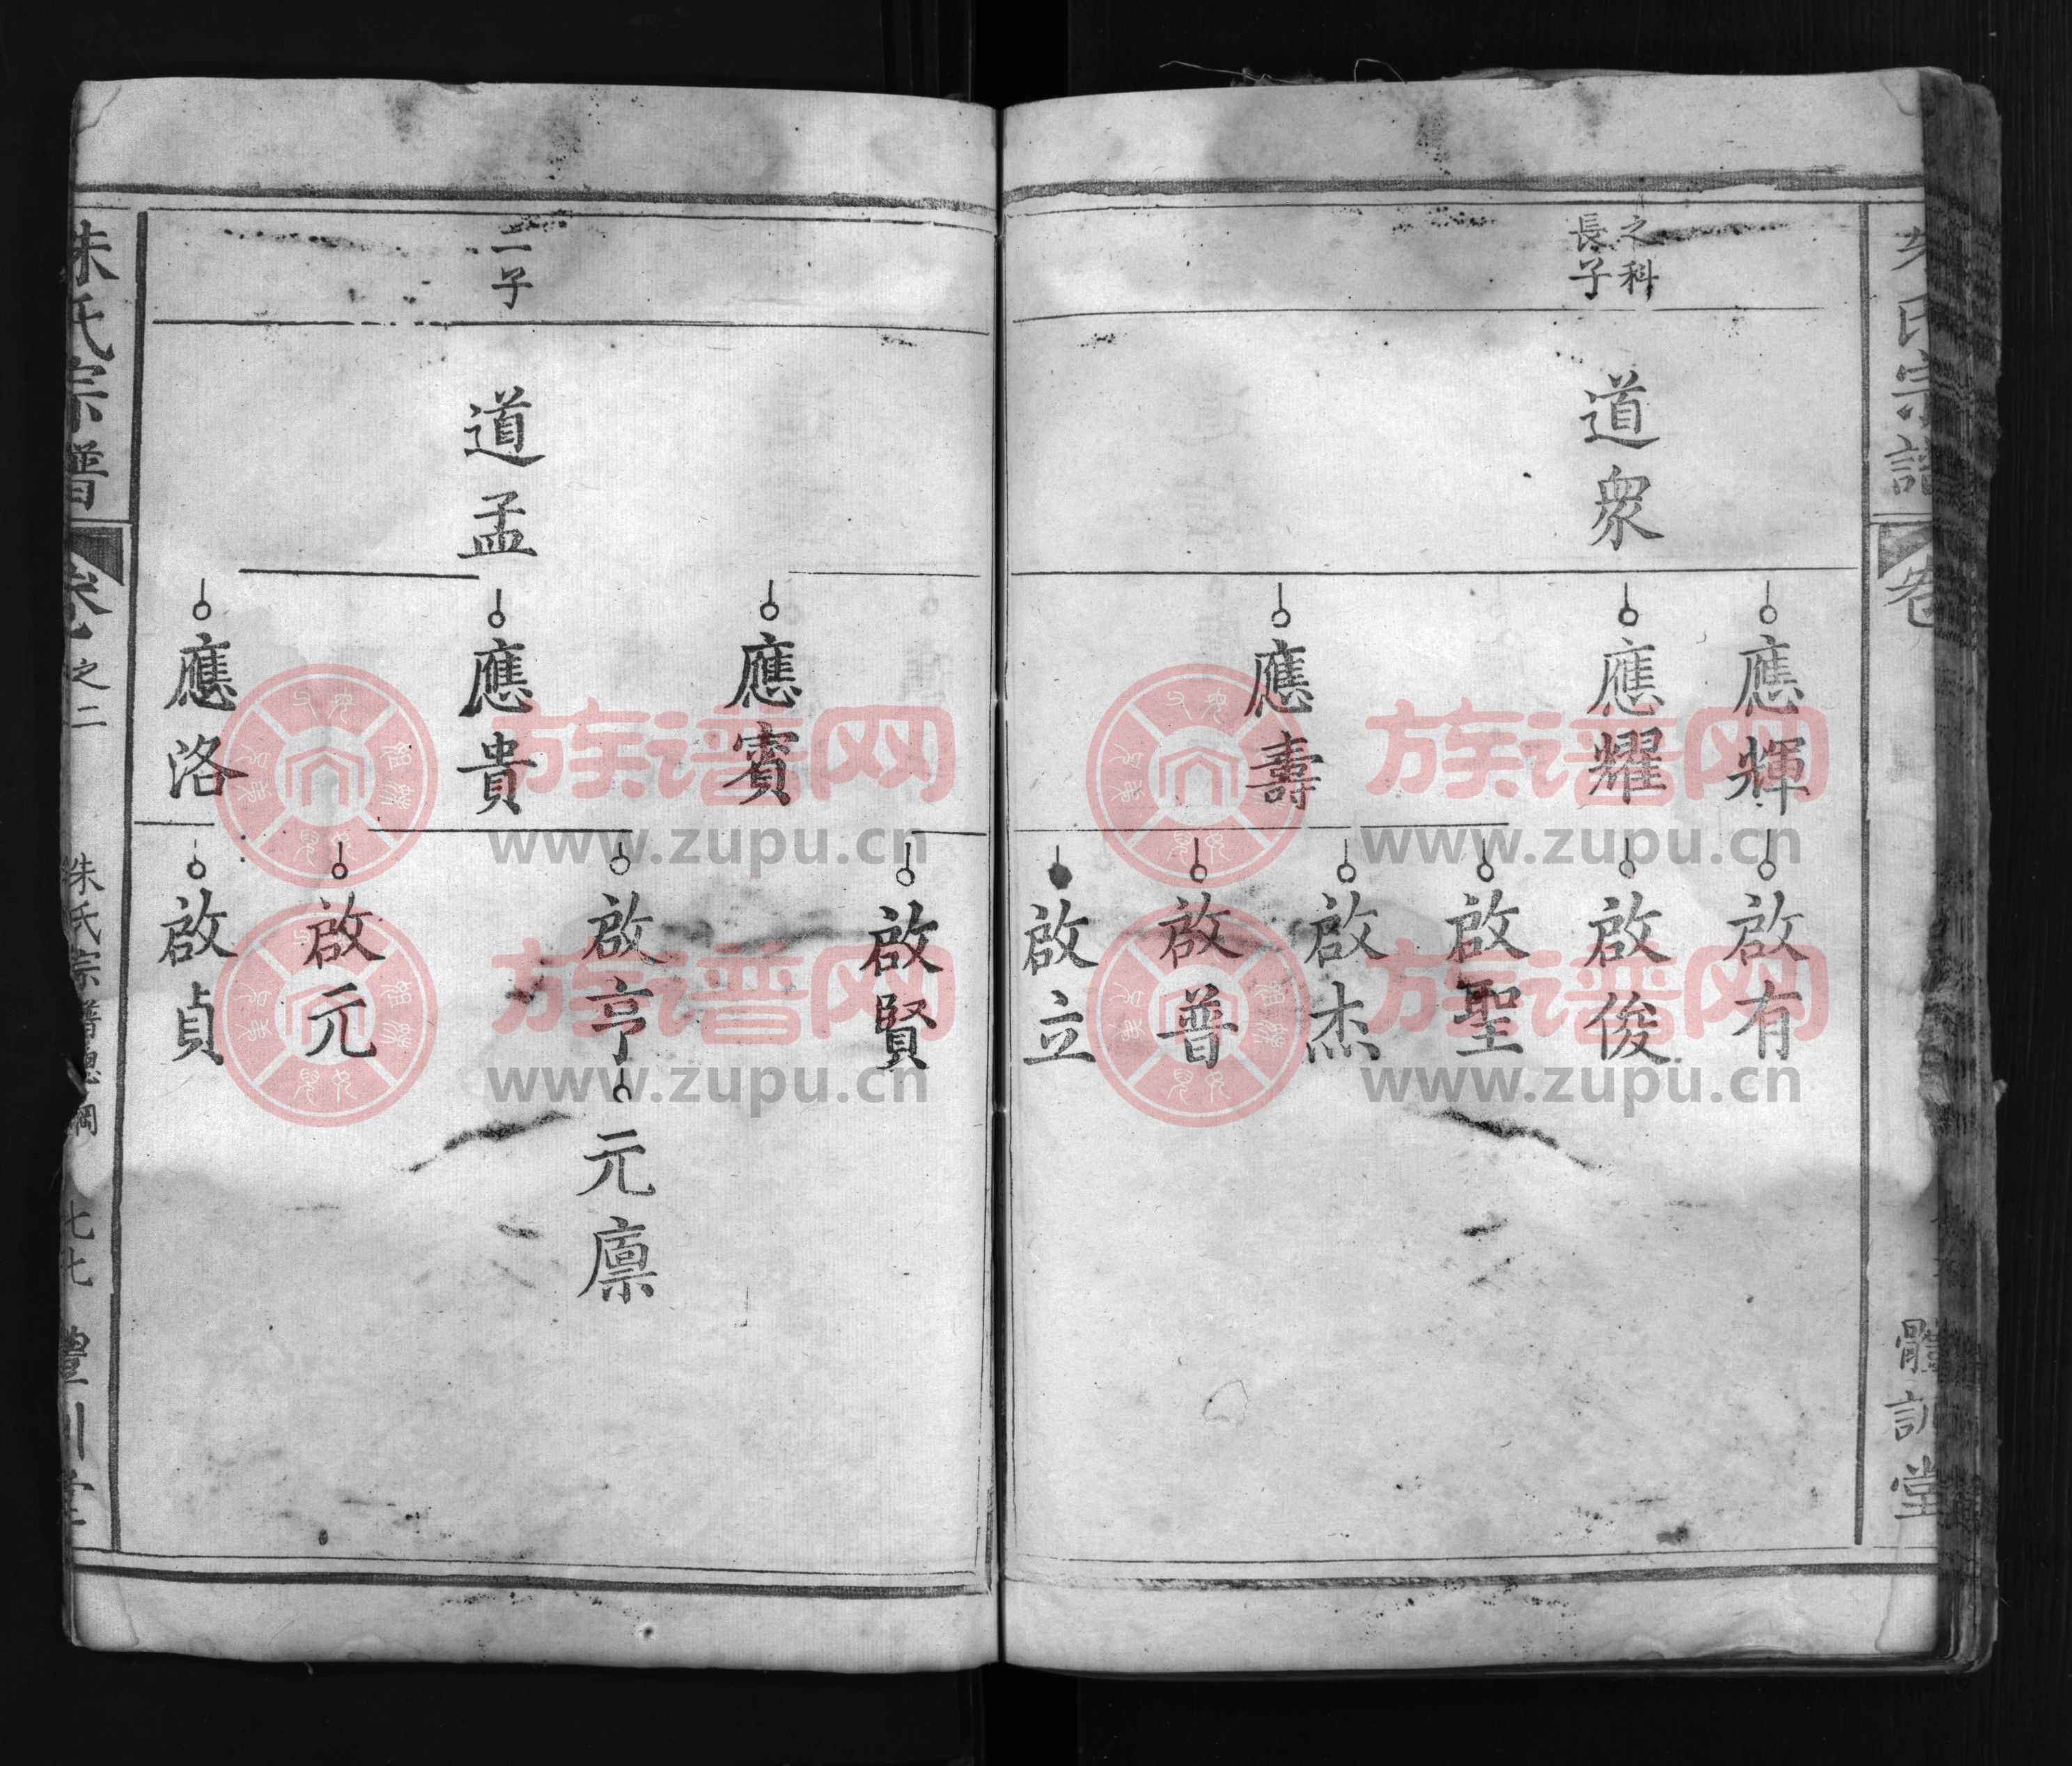 氏宗譜
卷
體訓堂
之科
長子
道衆
應輝
應耀
應壽
啟有
啟俊
啟聖
啟杰
啟普
啟立
二子
道孟
應賓
應貴
應洛
啟賢
啟亨
元廪
啟元
啟貞
朱氏宗譜
卷
之二
朱氏宗譜總綱
七七
族谱网
www.zupu.cn
族谱网
www.zupu.cn
族谱网
www.zupu.cn
族谱网
www.zupu.cn